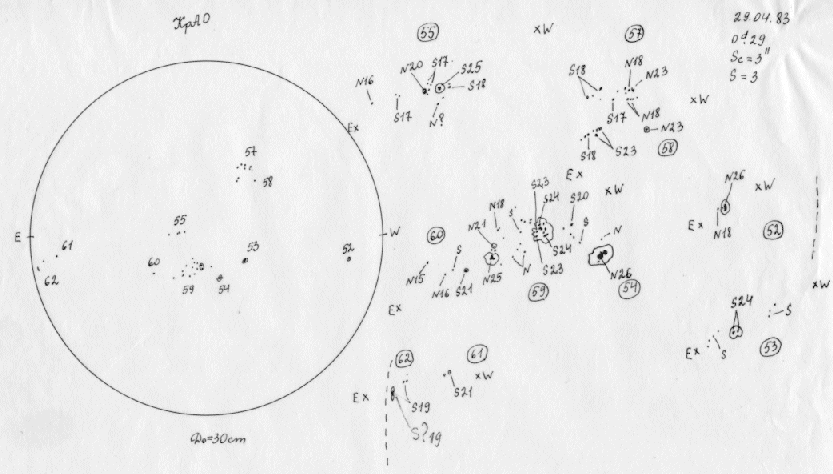 КрАО
29.04.83
Od. 29
Sc = 3"
S = 3
E
W
57
58
55
53
52
60
59
54
61
62
D₀=30cm
55
xW
N20
S17
S25
S18
N16
S17
N8
Ex
57
S18
N18
N23
S17
N18
xW
N23
S18
S23
58
Ex
xW
S23
S24
S20
N18
S
S
N
N21
60
S
S24
S23
N
N25
N26
N15
N16
S21
59
54
Ex
N26
xW
Ex
N18
52
xW
S24
S
Ex
S
53
62
61
xW
Ex
S19
S21
S?19